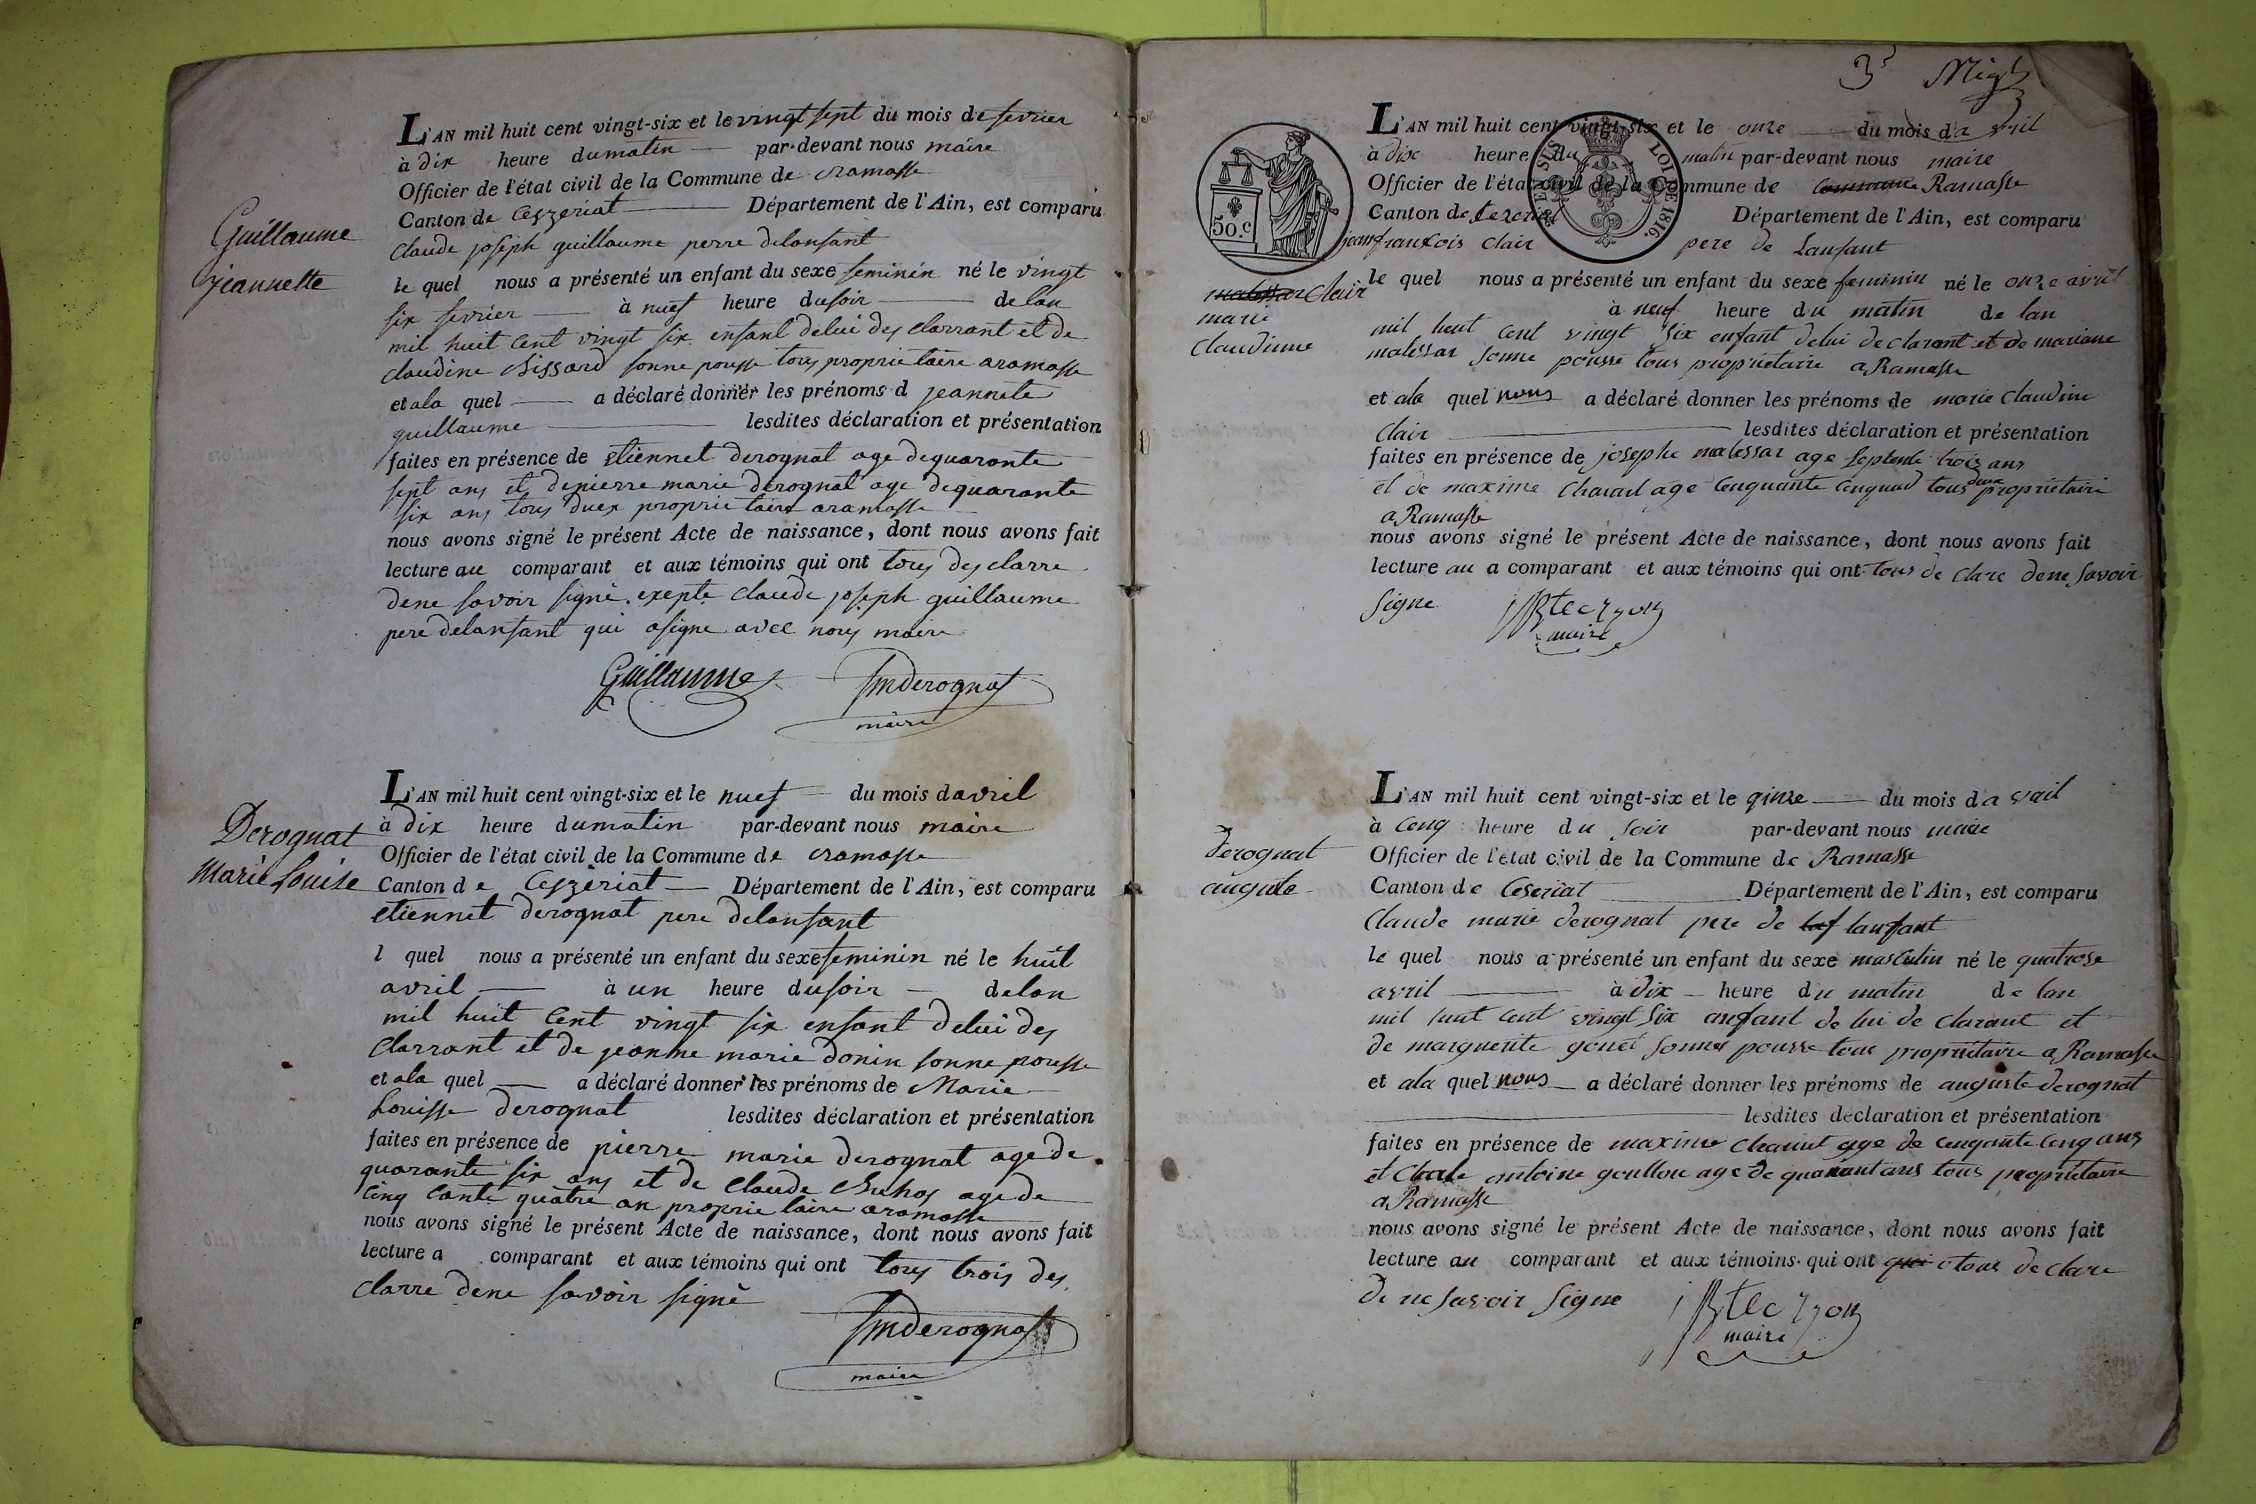 Guillaume
jeannette
L'AN mil huit cent vingt-six et le vingt sept du mois de fevrier
à dix heure du matin par-devant nous maire
Officier de l'état civil de la Commune de ramasse
Canton de Ceyzeriat Département de l'Ain, est comparu
Claude joseph guillaume perre delanfant
le quel nous a présenté un enfant du sexe feminin né le vingt
six fevrier à nuef heure du soir de lan
mil huit cent vingt six enfant delui des clarrant et de
claudine Bissard sonne pousse tous proprietaire aramasse
et ala quel a déclaré donner les prénoms d jeannete
guillaume lesdites déclaration et présentation
faites en présence de etiennet derognat age dequarante
sept ans et depierre marie derognat age dequarante
six ans tous duex proprietaire aramasse
nous avons signé le présent Acte de naissance, dont nous avons fait
lecture au comparant et aux témoins qui ont tous des clarre
dene savoir signé exepte claude joseph guillaume
pere delanfant qui asigne avec nous maire
Guillaume
Pmderognat
maire
Derognat
Marie Louise
L'AN mil huit cent vingt-six et le nuef du mois davril
à dix heure dumatin par-devant nous maire
Officier de l'état civil de la Commune de ramasse
Canton de Ceyzèriat Département de l'Ain, est comparu
etiennet derognat pere delanfant
l quel nous a présenté un enfant du sexe feminin né le huit
avril à un heure dusoir delan
mil huit cent vingt six enfant delui des
clarrant et de jeanne marie donin sonne pousse
et ala quel a déclaré donner les prénoms de Marie
Louisse derognat lesdites déclaration et présentation
faites en présence de pierre marie derognat age de
quarante six ans et de claude age de
cinq cante quatre an proprietaire aramasse
nous avons signé le présent Acte de naissance, dont nous avons fait
lecture a comparant et aux témoins qui ont tous trois des
clarre dene savoir signé
Pmderognat
maire
3
50.C
LOI DE 1816.
jean
malessar Clair
marie
claudinne
L'AN mil huit cent vingt-six et le onze du mois d'a vril
à dix heure du matin par-devant nous maire
Officier de l'état civil de la Commune de commune Ramasse
Canton de Département de l'Ain, est comparu
francois clair pere de Lanfant
le quel nous a présenté un enfant du sexe feminin né le onze avril
à neuf heure du matin de lan
mil huit cent vingt six enfant delui declarant et de mariane
malessar sonne pousse tous propriétaire a Ramasse
et ala quel nous a déclaré donner les prénoms de marie claudine
clair lesdites déclaration et présentation
faites en présence de josephe malessar age septente trois ans
et de maxime age cenquante tous deux propriétaire
a Ramasse
nous avons signé le présent Acte de naissance, dont nous avons fait
lecture au a comparant et aux témoins qui ont tous de clare dene savoir
signe
maire
derognat
auguste
L'AN mil huit cent vingt-six et le qinze du mois d'a vail
à cenq heure du soir par-devant nous maire
Officier de l'état civil de la Commune de Ramasse
Canton de Ceseriat Département de l'Ain, est comparu
Claude marie derognat pere de laf lanfant
le quel nous a présenté un enfant du sexe masculin né le quatrose
avril à dix heure du matin de lan
mil huit cent vingt six anfant de lui de clarant et
de marguerite sonne pousse tous propriétaire a Ramasse
et ala quel nous a déclaré donner les prénoms de auguste derognat
lesdites déclaration et présentation
faites en présence de maxime age de cenqante cenq ans
et antoine goullon age de quarantans tous propriétaire
a Ramasse
nous avons signé le présent Acte de naissance, dont nous avons fait
lecture au comparant et aux témoins qui ont qui tous de clare
de ne savoir signe
maire